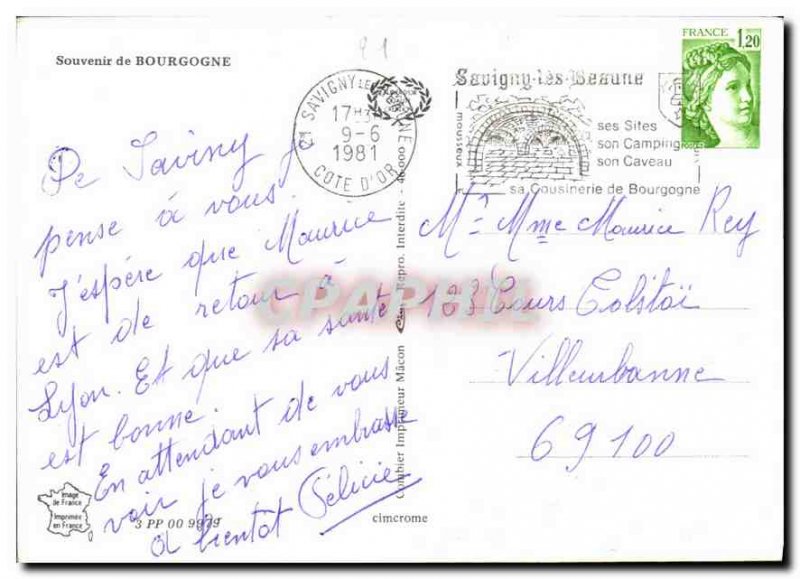 Souvenir de BOURGOGNE
21
SAVIGNY LES BEAUNE
17H
9-6
1981
COTE D'OR
Savigny-lès-Beaune
ses Sites
son Camping
son Caveau
sa Cousinerie de Bourgogne
FRANCE 1,20
De Saviny je
pense à vous.
J'espère que Maurice
est de retour à
Lyon. Et que sa santé
est bonne.
En attendant de vous
voir je vous embrasse
à bientôt Félicie
Mr Mme Maurice Rey
183 Cours Tolstoï
Villeurbanne
69100
Combier Imprimeur Mâcon
Repro. Interdite
Image
de France
Imprimée
en France
3 PP 00 9979
cimcrome
CPAPHIL